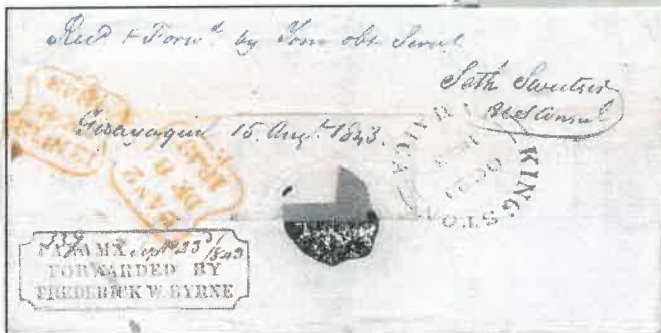 Recd & Forwd by Your obt Servt
Seth Sweetser
US Consul
Guayaquil 15. Augt 1843.
KINGSTON JAMAICA
PANAMA, Sept 23d/1843
FORWARDED BY
FREDERICK W. BYRNE